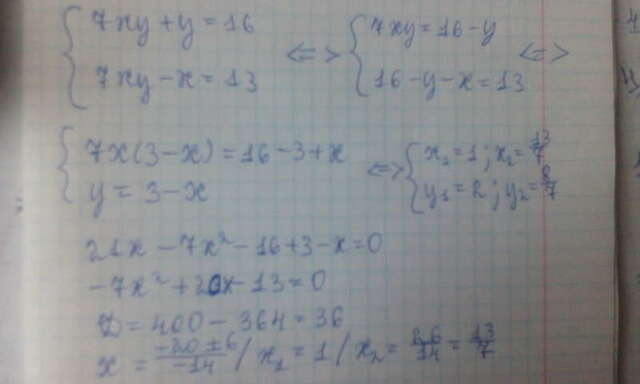 { 7xy + y = 16 <=> { 7xy = 16 - y <=>
7xy - x = 13 16 - y - x = 13
{ 7x(3 - x) = 16 - 3 + x <=> { x₁ = 1; x₂ = 13/7
y = 3 - x y₁ = 2; y₂ = 8/7
21x - 7x² - 16 + 3 - x = 0
-7x² + 20x - 13 = 0
D = 400 - 364 = 36
x = (-20 ± 6)/(-14) / x₁ = 1 / x₂ = 26/14 = 13/7